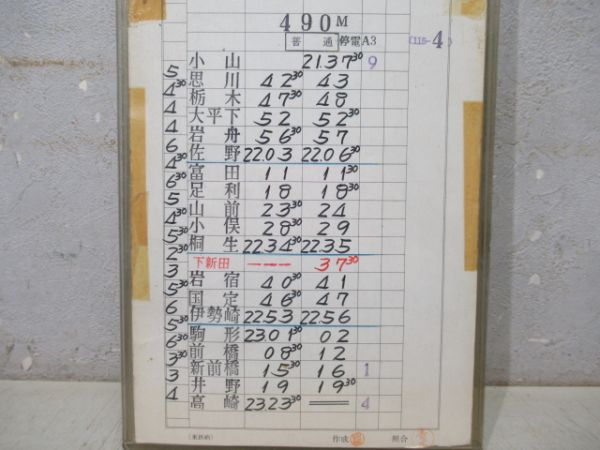 490M
普通 停電A3 (115-4)
小山 2137³⁰ 9
5
思川 42³⁰ 43
4³⁰
栃木 47³⁰ 48
4
大平下 52 52³⁰
4
岩舟 56³⁰ 57
6
佐野 22.03 22.06³⁰
4³⁰
富田 11 11³⁰
6³⁰
足利 18 18³⁰
5
山前 23³⁰ 24
4³⁰
小俣 28³⁰ 29
5³⁰
桐生 2234³⁰ 2235
2³⁰
下新田 --- 37³⁰
3
岩宿 40³⁰ 41
5³⁰
国定 46³⁰ 47
6
伊勢崎 2253 2256
5³⁰
駒形 23.01³⁰ 02
6³⁰
前橋 08³⁰ 12
3³⁰
新前橋 15³⁰ 16 1
3
井野 19 19³⁰
4
高崎 23.23³⁰ 4
作成 照合